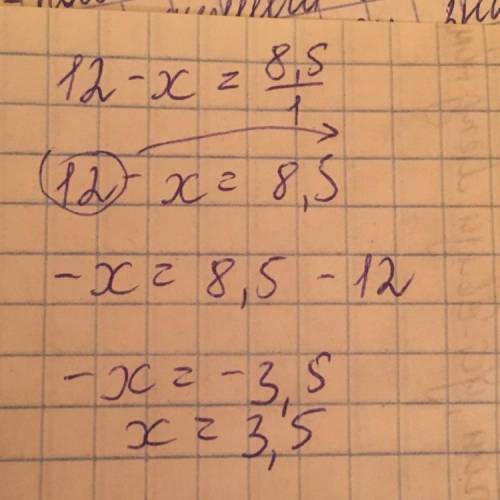 12 - x = 8,5/1
12 - x = 8,5
-x = 8,5 - 12
-x = -3,5
x = 3,5